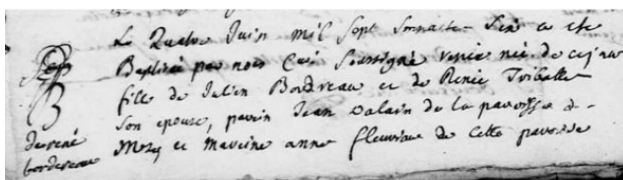 Le Quatre Juin mil sept soixante Six a été
Baptisée par nous Curé soussigné renée née de ce jour
B fille de Julien Bordereau et de Renée Triballe
de rené son epouse, parein Jean Valain de la paroisse de
bordereau Mozé et mareine anne fleuriau de cette paroisse